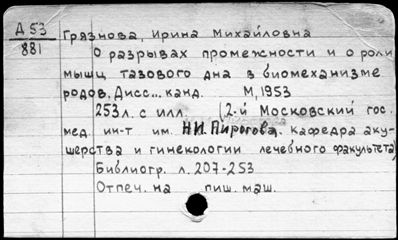 Д 53
881
Грязнова, Ирина Михайловна
О разрывах промежности и о роли
мышц тазового дна в биомеханизме
родов. Дисс... канд. М, 1953
253 л. с илл. (2-й Московский гос.
мед. ин-т им. Н.И. Пирогова. Кафедра аку-
шерства и гинекологии лечебного факультета)
Библиогр. л. 207-253
Отпеч. на пиш. маш.